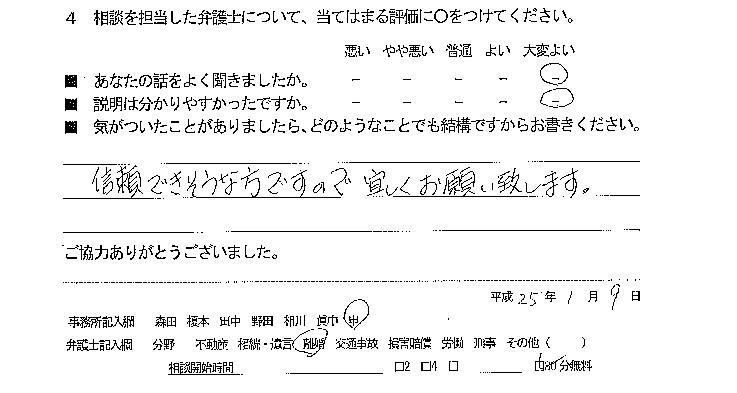 4 相談を担当した弁護士について、当てはまる評価に○をつけてください。
悪い やや悪い 普通 よい 大変よい
■ あなたの話をよく聞きましたか。 － － － － －
■ 説明は分かりやすかったですか。 － － － － －
■ 気がついたことがありましたら、どのようなことでも結構ですからお書きください。
信頼できそうな方ですので 宜しくお願い致します。
ご協力ありがとうございました。
平成 25 年 1 月 9 日
事務所記入欄 森田 榎本 田中 野田 相川 眞中
弁護士記入欄 分野 不動産 相続・遺言 離婚 交通事故 損害賠償 労働 刑事 その他（ ）
相談開始時間 □2 □4 □ 分無料